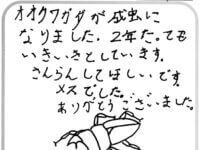 オオクワガタが成虫に
なりました。2年たっても
いきいきとしています。
さんらんしてほしいです。
メスでした。
ありがとうございました。